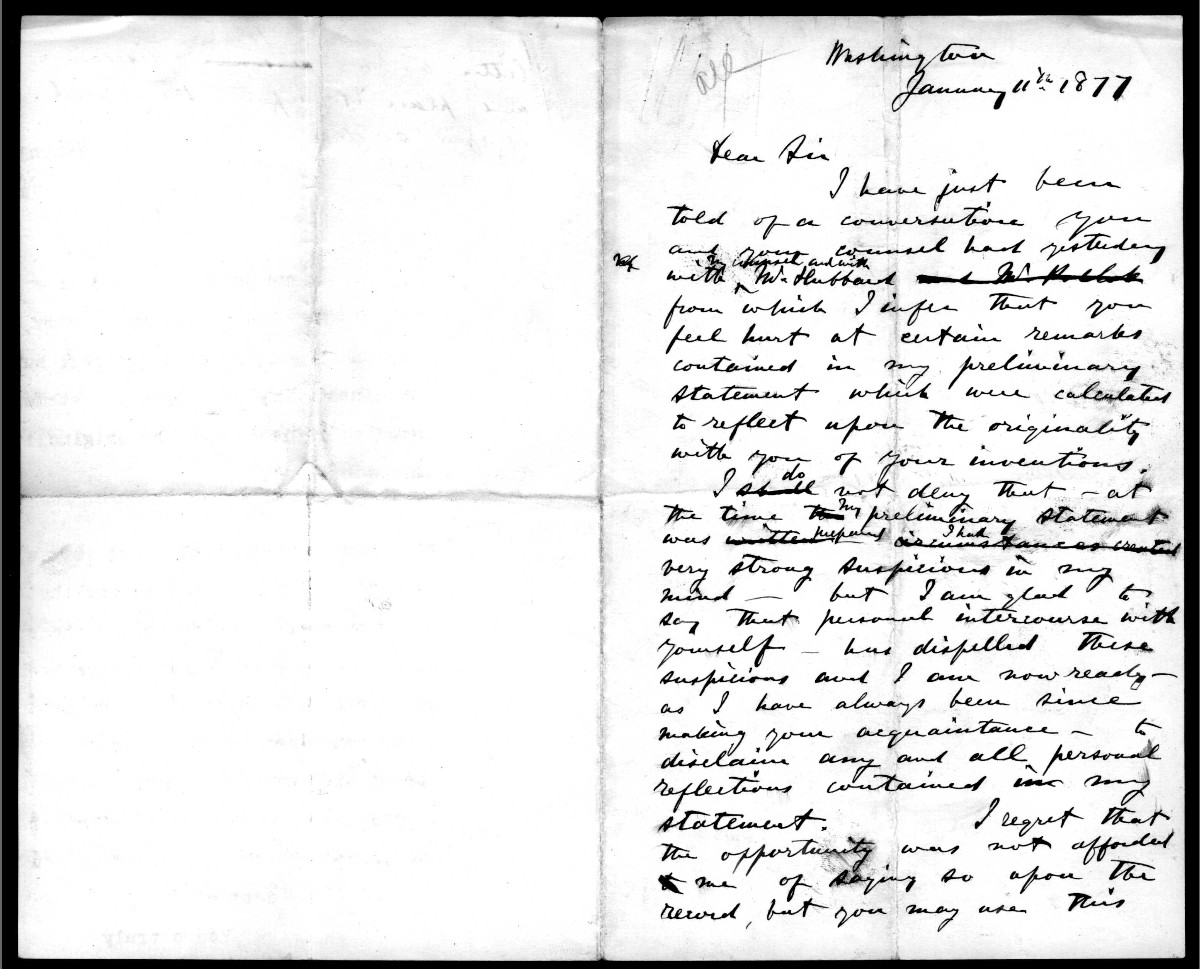 Washington
January 11th 1877
Dear Sir
I have just been
told of a conversation you
and your counsel had yesterday
my counsel and with
with Mr. Hubbard and Mr.
from which I infer that you
feel hurt at certain remarks
contained in my preliminary
statement which were calculated
to reflect upon the originality
with you of your inventions.
do
I shall not deny that - at
my
the time the preliminary statement
prepared I had
was written circumstances created
very strong suspicions in my
mind — but I am glad to
say that personal intercourse with
yourself — has dispelled these
suspicions and I am now ready —
as I have always been since
making your acquaintance — to
disclaim any and all personal
reflections contained in my
statement. I regret that
the opportunity was not afforded
me of saying so upon the
record, but you may use this